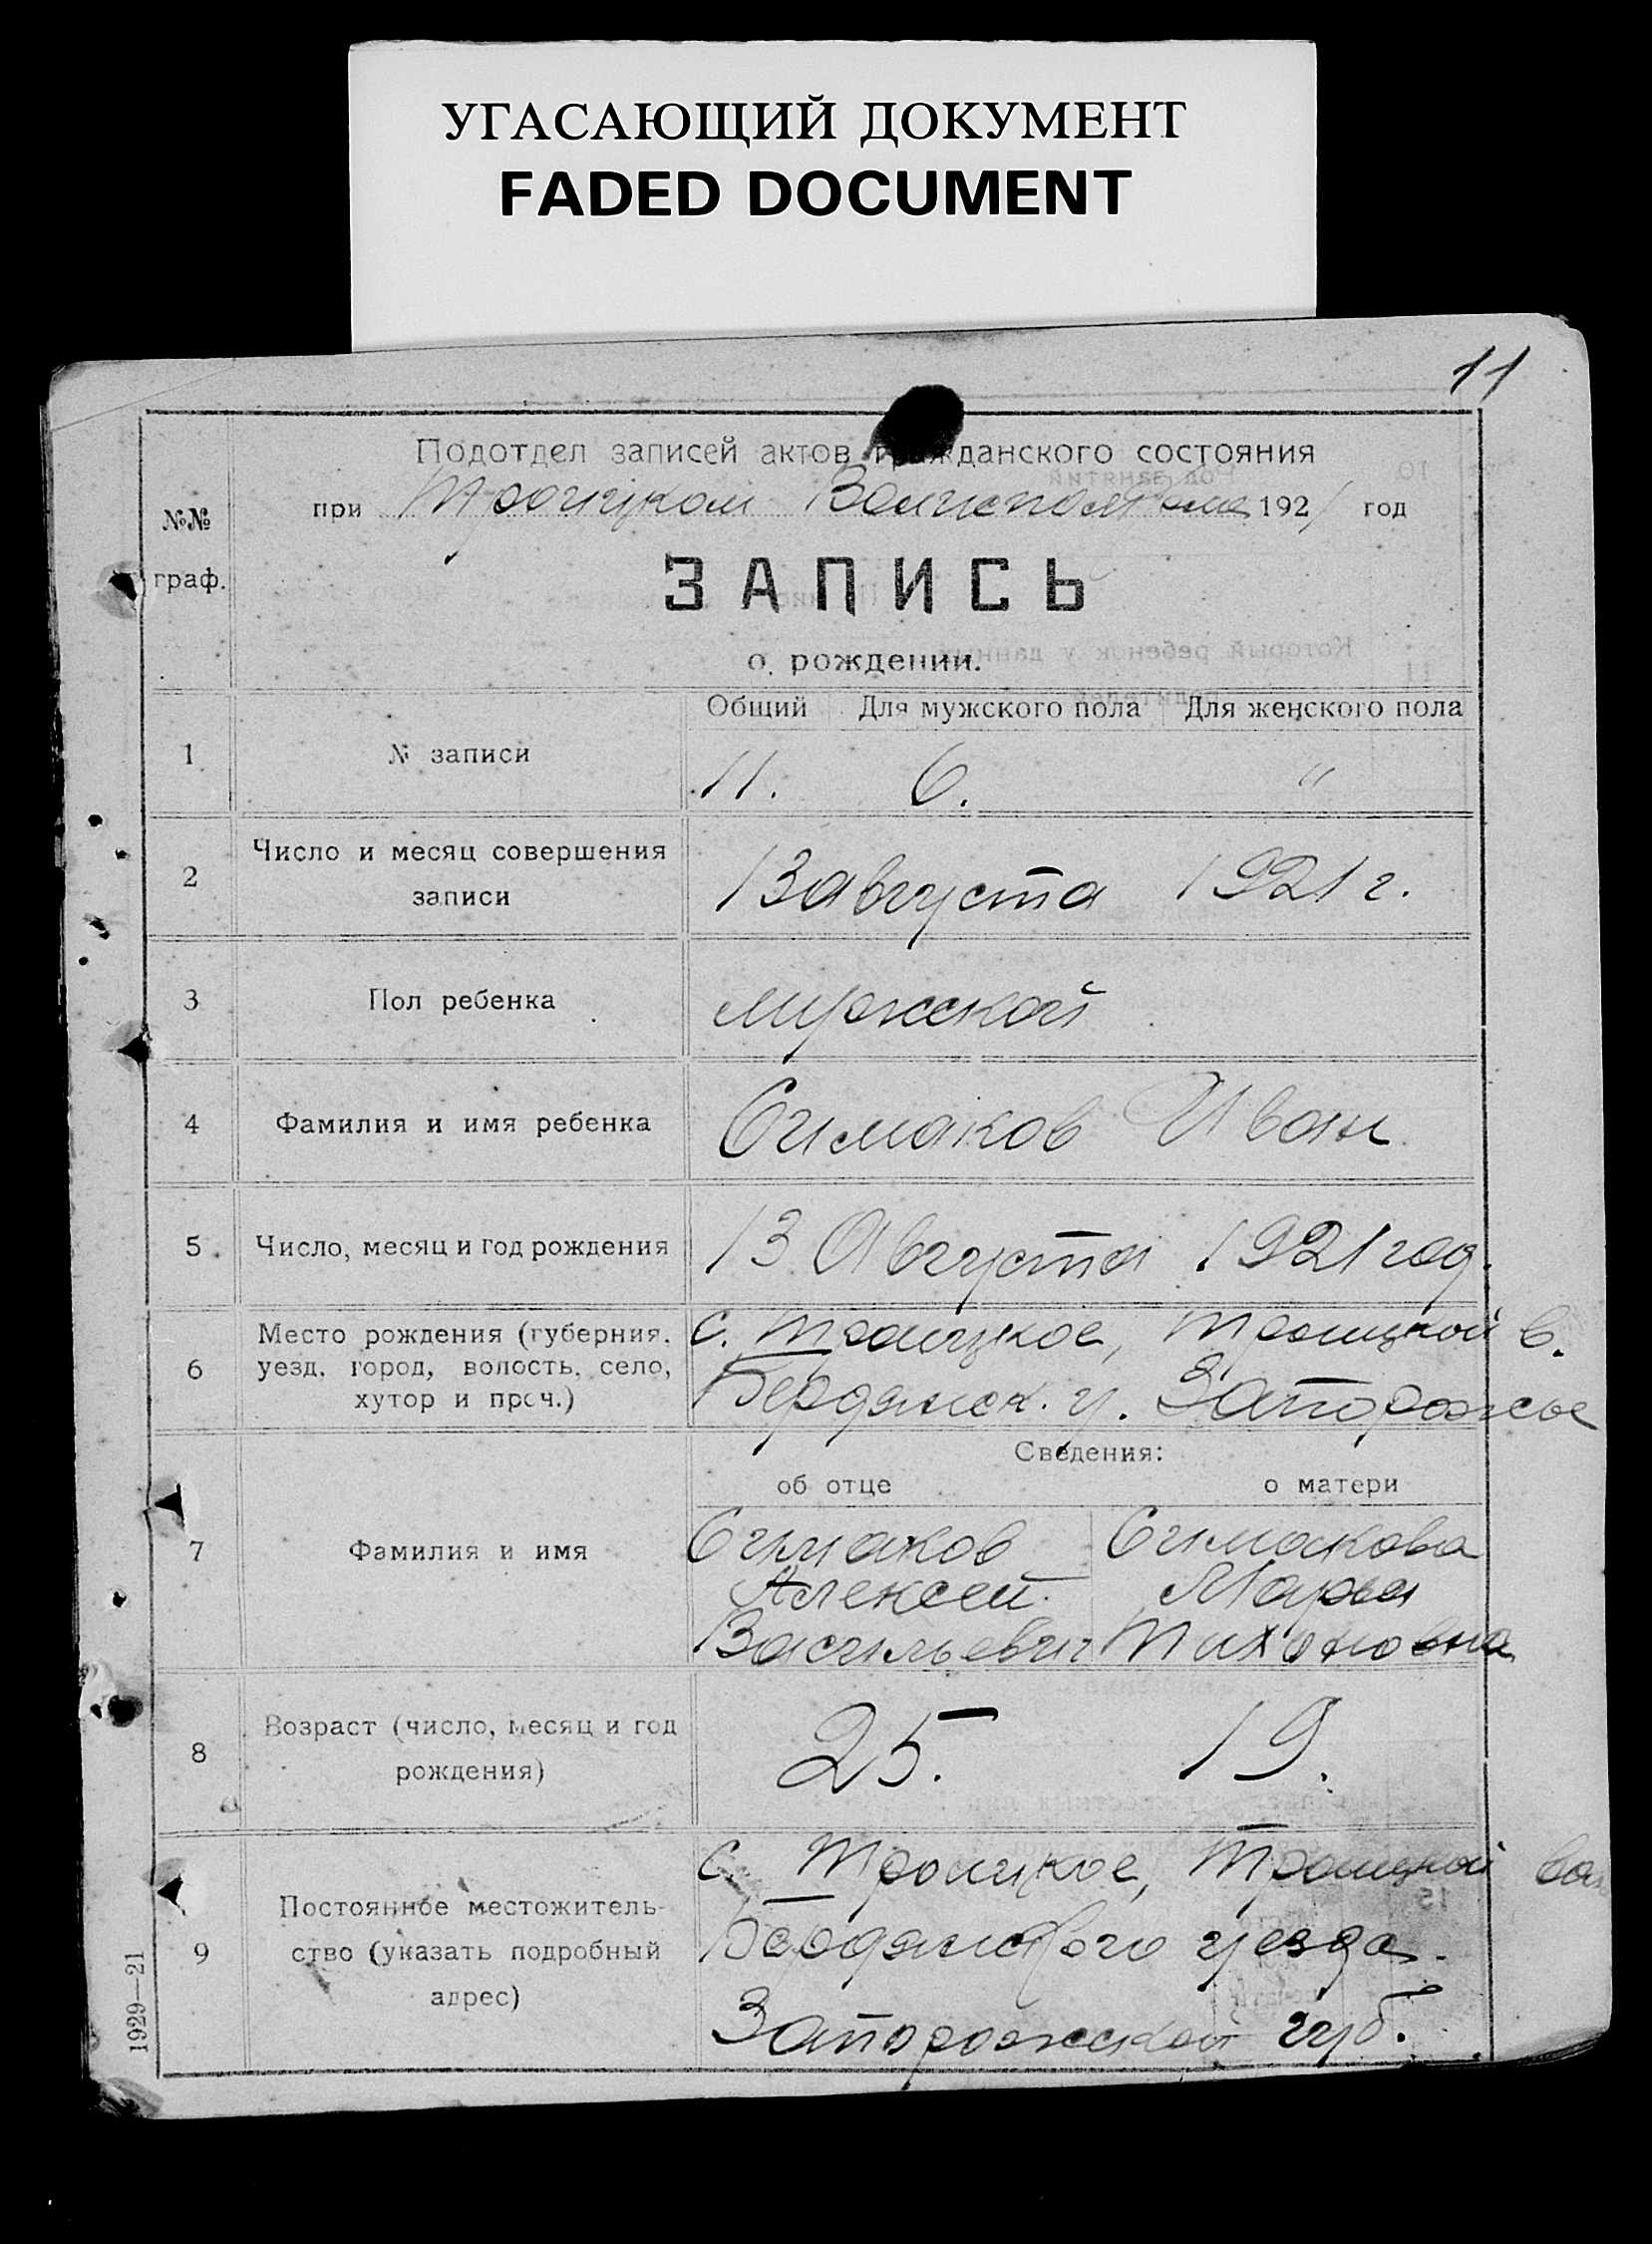 УГАСАЮЩИЙ ДОКУМЕНТ
FADED DOCUMENT
11
Подотдел записей актов гражданского состояния
при Троицком Волисполкоме 1921 год
№№
граф.
ЗАПИСЬ
о рождении.
Общий Для мужского пола Для женского пола
1 № записи 11. 6. "
2 Число и месяц совершения
записи
13 августа 1921 г.
3 Пол ребенка мужской
4 Фамилия и имя ребенка Симаков Иван
5 Число, месяц и год рождения 13 Августа 1921 год.
6 Место рождения (губерния,
уезд, город, волость, село,
хутор и проч.)
с. Троицкое, Троицкой в.
Бердянск. у. Запорожье
Сведения:
об отце о матери
7 Фамилия и имя
Симаков Симакова
Алексей Марья
Васильевич Тихоновна
8 Возраст (число, месяц и год
рождения)
25. 19.
9 Постоянное местожитель-
ство (указать подробный
адрес)
с. Троицкое, Троицкой вол
Бердянского уезда.
Запорожской губ.
1929—21